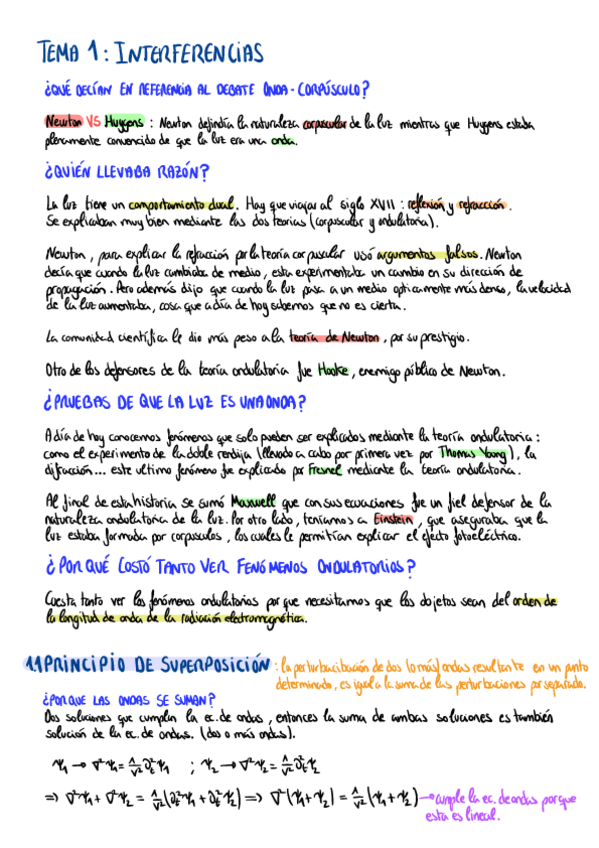 TEMA 1: INTERFERENCIAS
¿QUÉ DECÍAN EN REFERENCIA AL DEBATE ONDA-CORPÚSCULO?
Newton VS Huygens: Newton defindía la naturaleza corpuscular de la luz mientras que Huygens estaba
plenamente convencido de que la luz era una onda.
¿QUIÉN LLEVABA RAZÓN?
La luz tiene un comportamiento dual. Hay que viajar al siglo XVII: reflexión y refracción.
Se explicaban muy bien mediante las dos teorías (corpuscular y ondulatoria).
Newton, para explicar la refracción por la teoría corpuscular usó argumentos falsos. Newton
decía que cuando la luz cambiaba de medio, esta experimentaba un cambio en su dirección de
propagación. Pero además dijo que cuando la luz pasa a un medio opticamente más denso, la velocidad
de la luz aumentaba, cosa que a día de hoy sabemos que no es cierta.
La comunidad científica le dio más peso a la teoría de Newton, por su prestigio.
Otro de los defensores de la teoría ondulatoria fue Hooke, enemigo público de Newton.
¿PRUEBAS DE QUE LA LUZ ES UNA ONDA?
A día de hoy conocemos fenómenos que solo pueden ser explicados mediante la teoría ondulatoria:
como el experimento de la doble rendija (llevado a cabo por primera vez por Thomas Young), la
difracción... este ultimo fenómeno fue explicado por Fresnel mediante la teoría ondulatoria.
Al final de esta historia se sumó Maxwell que con sus ecuaciones fue un fiel defensor de la
naturaleza ondulatoria de la luz. Por otro lado, teníamos a Einstein, que aseguraba que la
luz estaba formada por corpusculos, los cuales le permitían explicar el efecto fotoeléctrico.
¿POR QUÉ COSTÓ TANTO VER FENÓMENOS ONDULATORIOS?
Cuesta tanto ver los fenómenos ondulatorios porque necesitamos que los objetos sean del orden de
la longitud de onda de la radiación electromagnética.
1.1 PRINCIPIO DE SUPERPOSICIÓN: la perturbacibación de dos (o más) ondas resultante en un punto
determinado, es igual a la suma de las perturbaciones por separado.
¿POR QUE LAS ONDAS SE SUMAN?
Dos soluciones que cumplan la ec. de ondas, entonces la suma de ambas soluciones es también
solución de la ec. de ondas. (dos o más ondas).
Ψ₁ → ∇²Ψ₁ = 1/v² ∂ₜ²Ψ₁ ; Ψ₂ → ∇²Ψ₂ = 1/v² ∂ₜ²Ψ₂
⇒ ∇²Ψ₁ + ∇²Ψ₂ = 1/v² (∂ₜ²Ψ₁ + ∂ₜ²Ψ₂) ⇒ ∇²(Ψ₁ + Ψ₂) = 1/v² (Ψ₁ + Ψ₂) → cumple la ec. de ondas porque
esta es lineal.